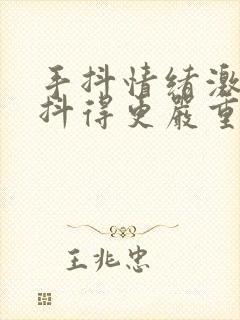 手抖情绪激
抖得更严重
王兆忠